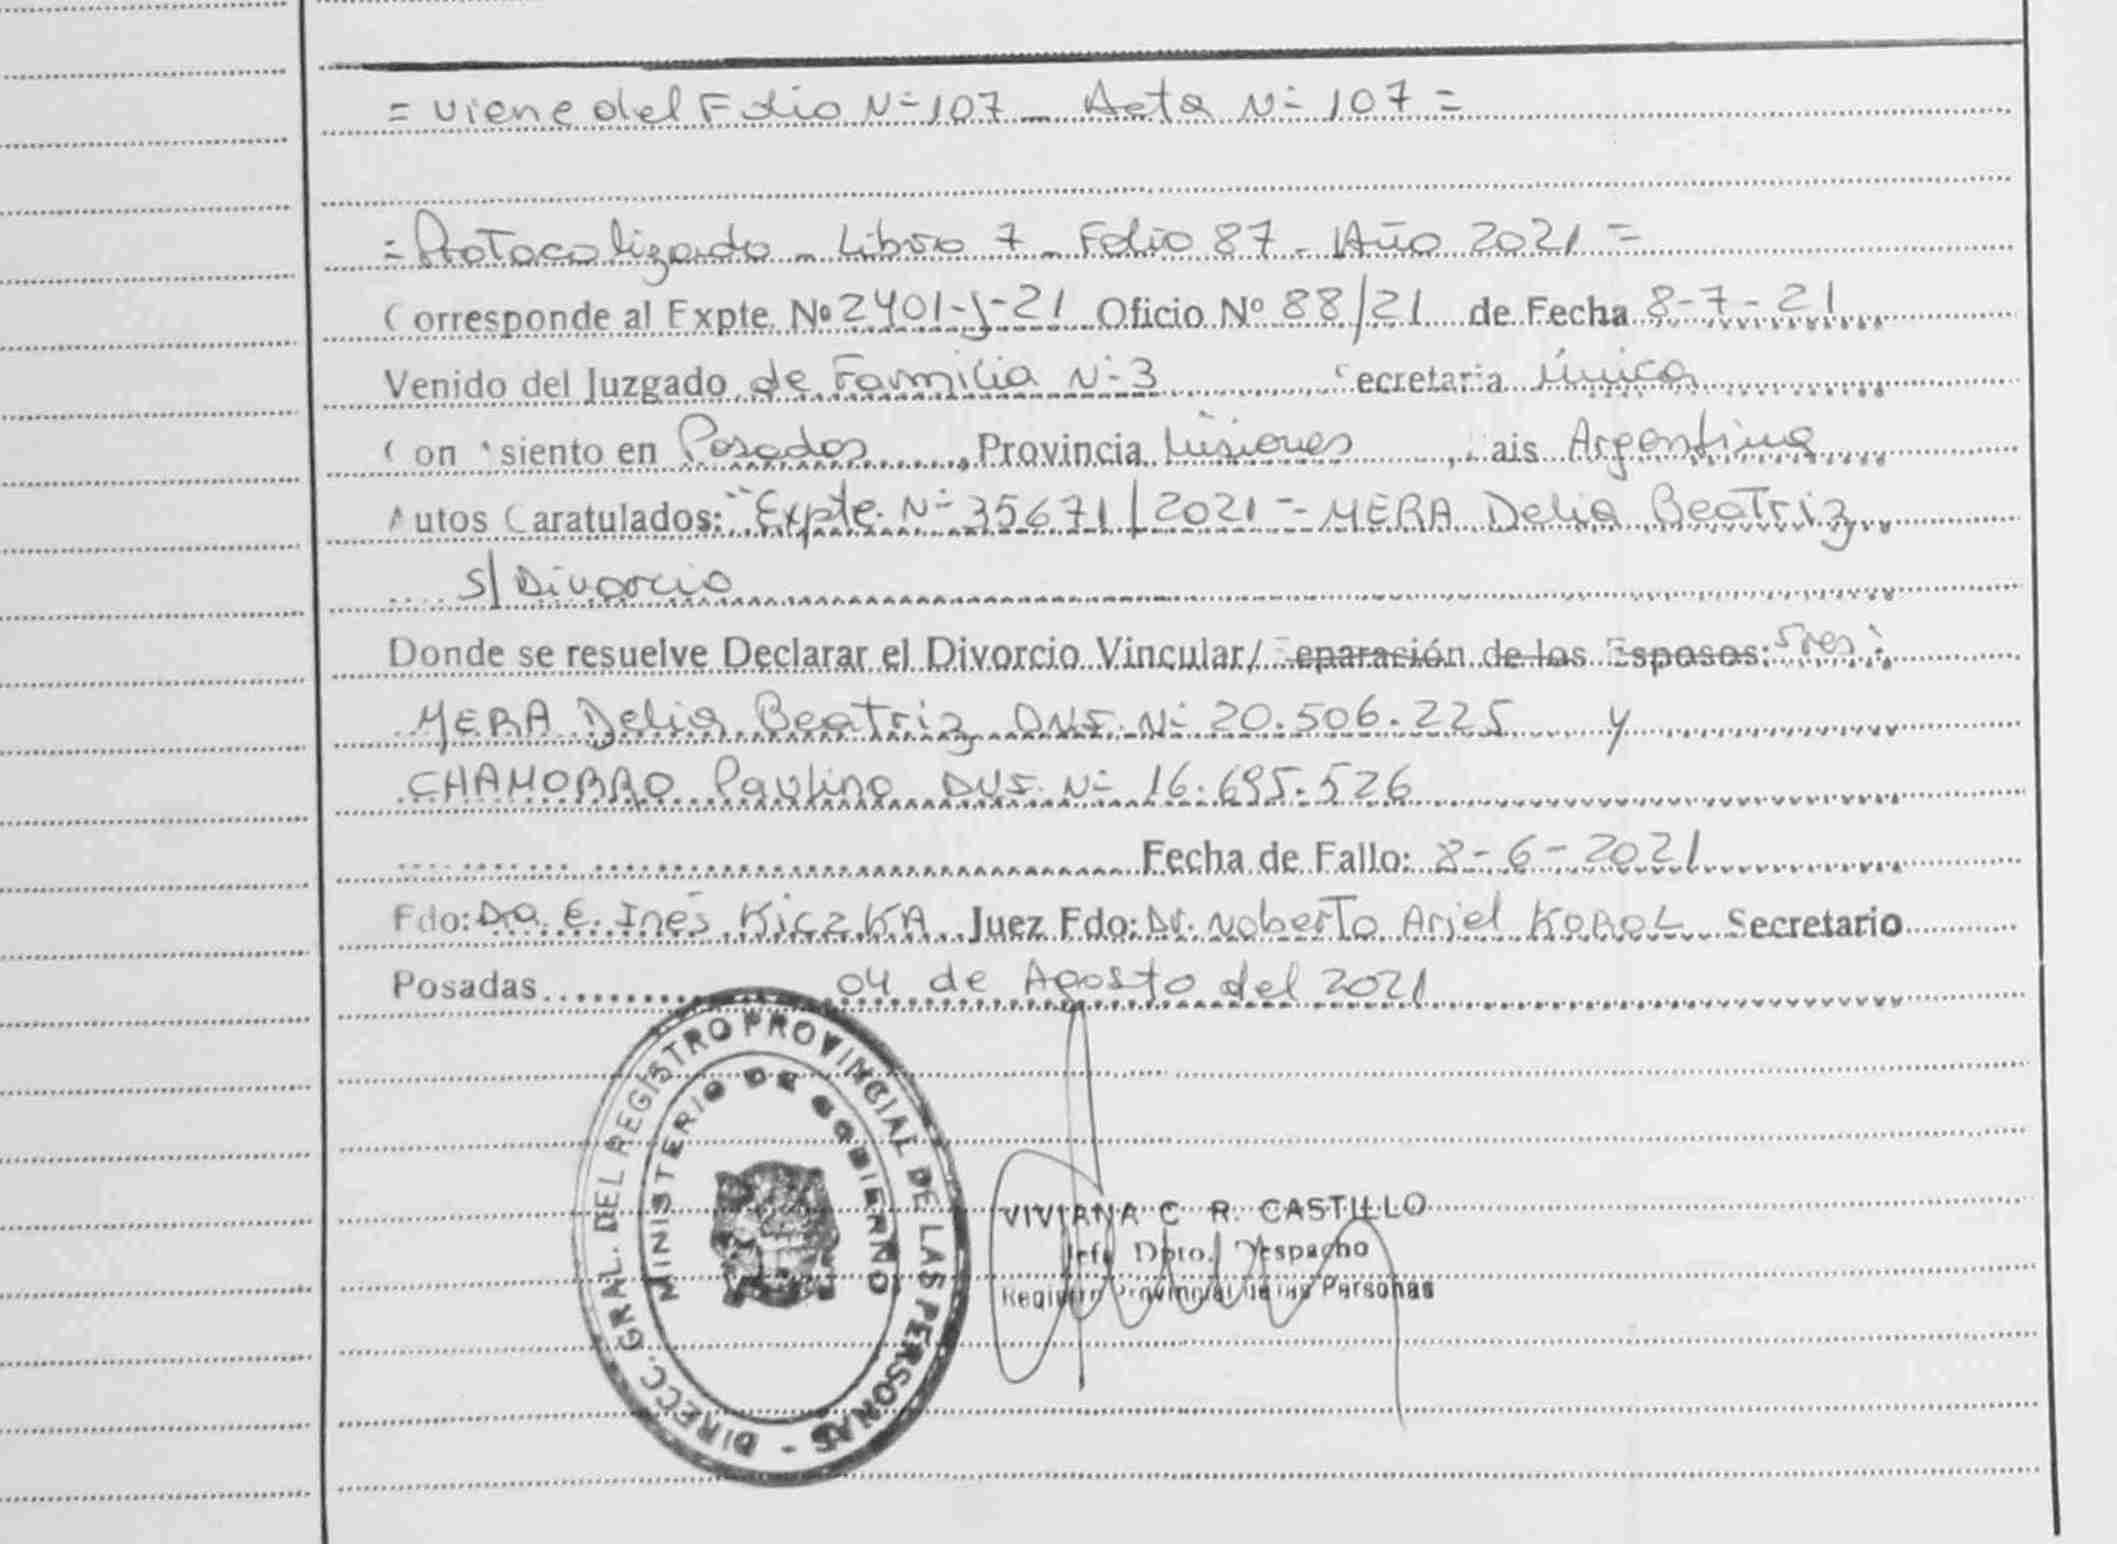 = viene del Folio Nº 107 _ Acta Nº 107 =
= Protocolizado _ Libro 7 _ Folio 87 - Año 2021 =
Corresponde al Expte. Nº 2401-J-21 Oficio Nº 88/21 de Fecha 8-7-21
Venido del Juzgado de Familia Nº 3 Secretaria Única
Con Asiento en Posadas, Provincia Misiones, Pais Argentina
Autos Caratulados: "Expte. Nº 35671/2021 - MERA Delia Beatriz
S/ Divorcio
Donde se resuelve Declarar el Divorcio Vincular/ Separación de los Esposos: Sres:
MERA Delia Beatriz DNI. Nº 20.506.225 y
CHAMORRO Paulino DNI. Nº 16.695.526
Fecha de Fallo: 8-6-2021
Fdo: Dra. E. Inés KiczKA Juez Fdo: Dr. Noberto Ariel KOROL Secretario
Posadas 04 de Agosto del 2021
DIRECC. GRAL. DEL REGISTRO PROVINCIAL DE LAS PERSONAS -
MINISTERIO DE GOBIERNO
VIVIANA C. R. CASTILLO
Jefe Dpto. Despacho
Registro Provincial de las Personas